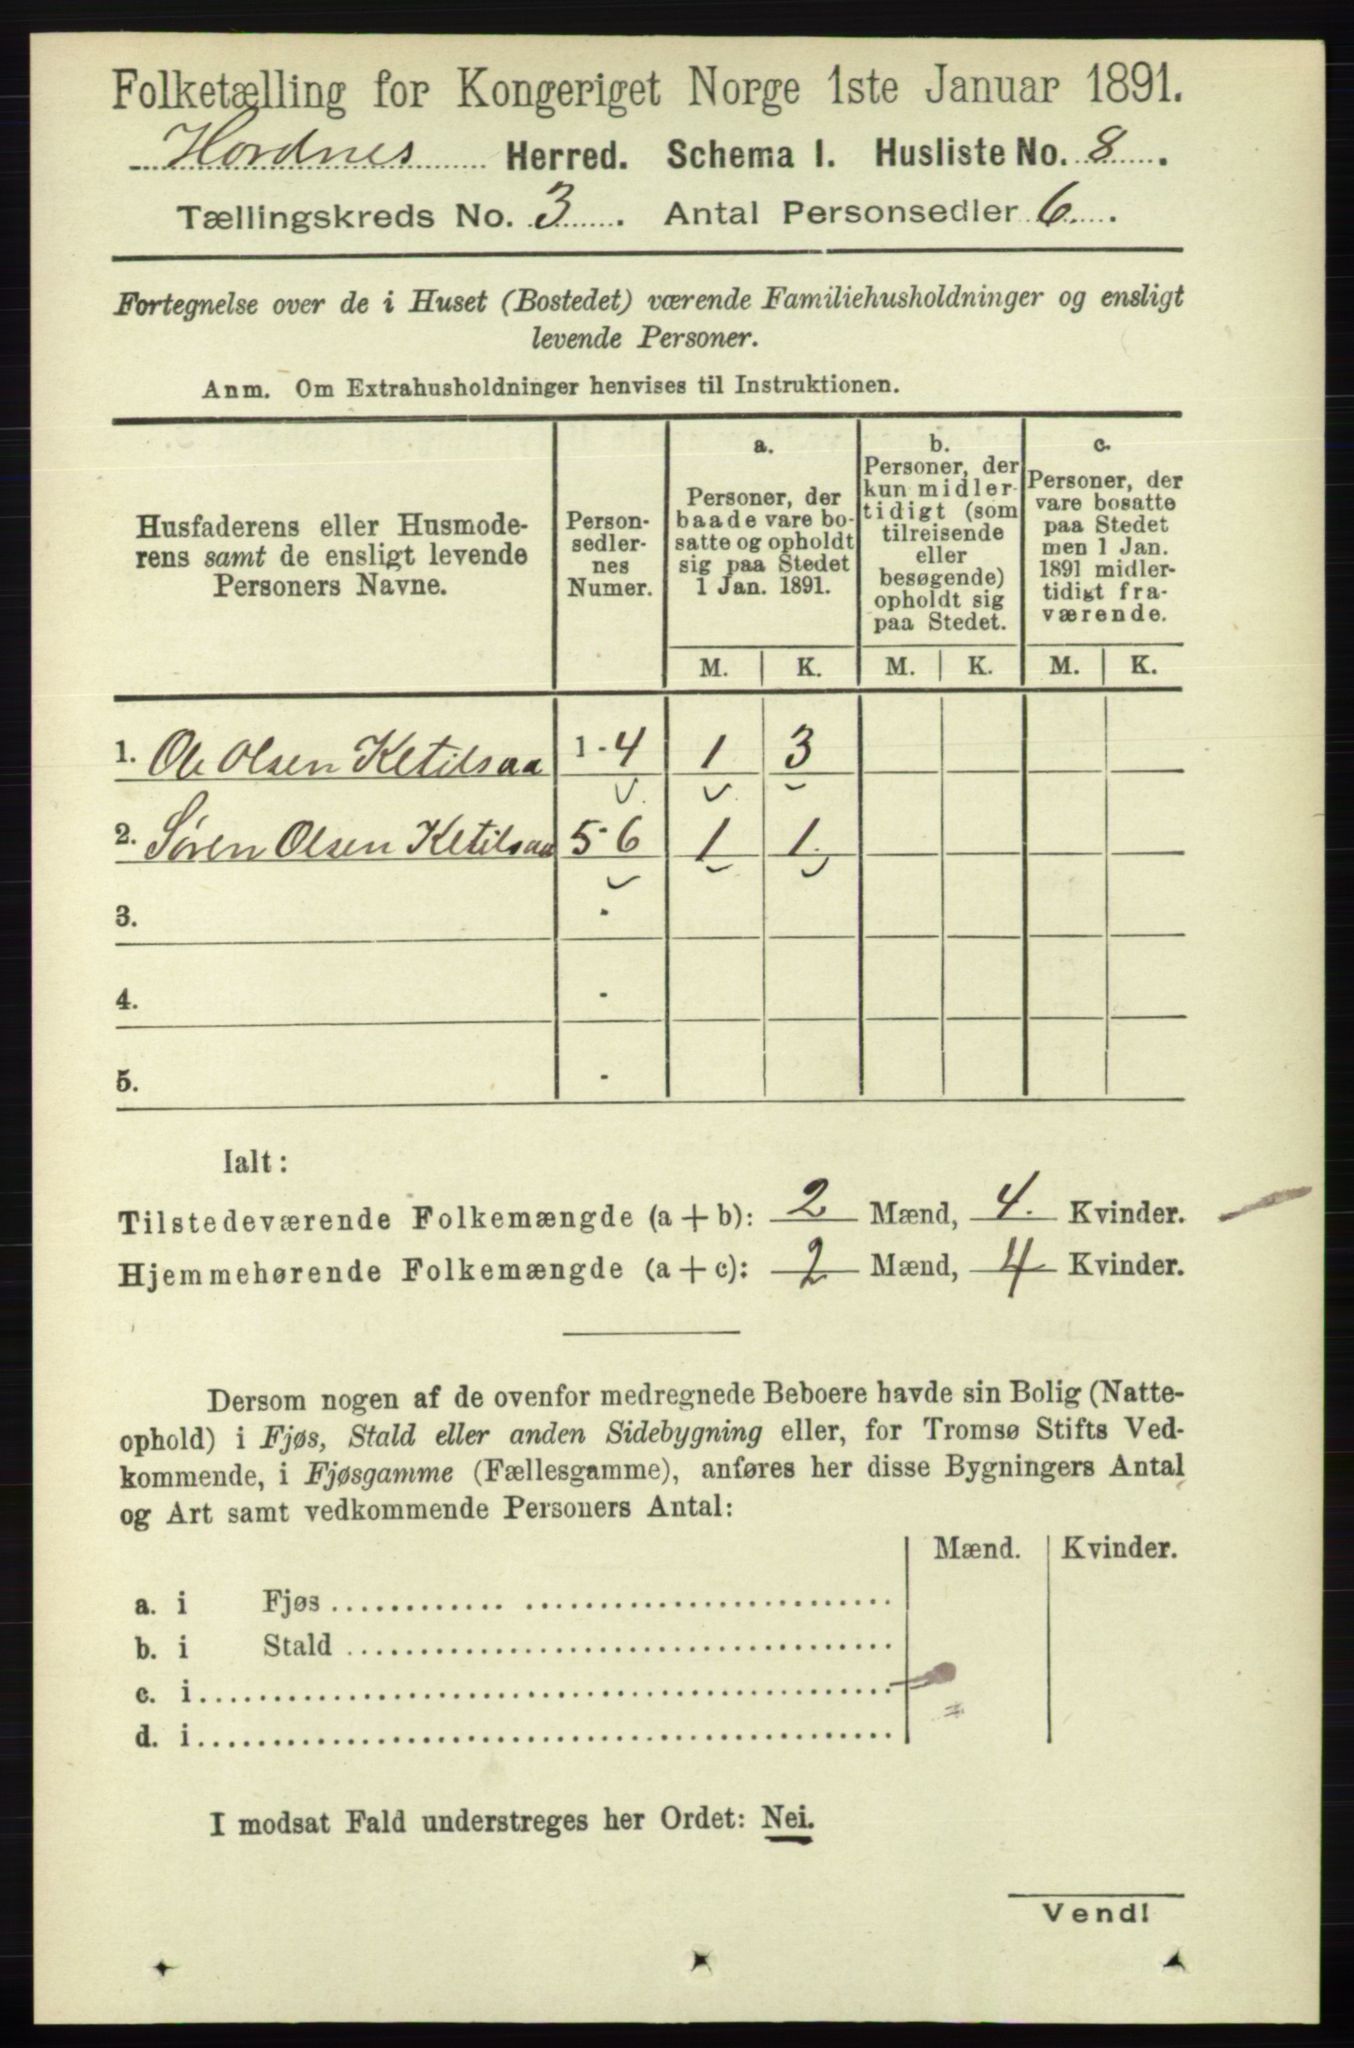 Folketælling for Kongeriget Norge 1ste Januar 1891.
Hordnes Herred. Schema I. Husliste No. 8.
Tællingskreds No. 3. Antal Personsedler 6.
Fortegnelse over de i Huset (Bostedet) værende Familiehusholdninger og ensligt
levende Personer.
Anm. Om Extrahusholdninger henvises til Instruktionen.
Husfaderens eller Husmode-
rens samt de ensligt levende
Personers Navne.
Person-
sedler-
nes
Numer.
a.
Personer, der
baade vare bo-
satte og opholdt
sig paa Stedet
1 Jan. 1891.
b.
Personer, der
kun midler-
tidigt (som
tilreisende
eller
besøgende)
opholdt sig
paa Stedet.
c.
Personer, der
vare bosatte
paa Stedet
men 1 Jan.
1891 midler-
tidigt fra-
værende.
M. K. M. K. M. K.
1. Ole Olsen Ketilsaa 1-4 1 3
2. Søren Olsen Ketilsaa 5-6 1 1.
3. -
4. -
5. -
Ialt:
Tilstedeværende Folkemængde (a + b): 2 Mænd, 4. Kvinder.
Hjemmehørende Folkemængde (a + c): 2 Mænd, 4 Kvinder.
Dersom nogen af de ovenfor medregnede Beboere havde sin Bolig (Natte-
ophold) i Fjøs, Stald eller anden Sidebygning eller, for Tromsø Stifts Ved-
kommende, i Fjøsgamme (Fællesgamme), anføres her disse Bygningers Antal
og Art samt vedkommende Personers Antal:
Mænd. Kvinder.
a. i Fjøs
b. i Stald
c. i
d. i
I modsat Fald understreges her Ordet: Nei.
Vend!